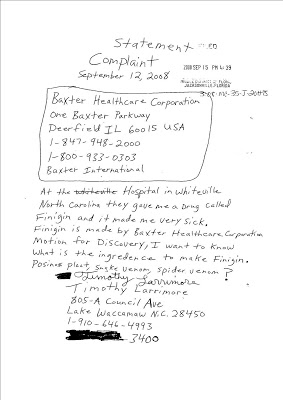 Statement
Complaint
September 12, 2008
2008 SEP 15 PM 4:39
JACKSONVILLE, FLORIDA
Baxter Healthcare Corporation
One Baxter Parkway
Deerfield IL 60015 USA
1-847-948-2000
1-800-933-0303
Baxter International
At the Hospital in Whiteville
North Carolina they gave me a Drug called
Finigin and it made me very sick.
Finigin is made by Baxter Healthcare Corporation
Motion for Discovery, I want to know
What is the ingredence to make Finigin.
plant, snake venom, spider venom?
Timothy Larrimore
Timothy Larrimore
805-A Council Ave
Lake Waccamaw N.C. 28450
1-910-646-4993
3400